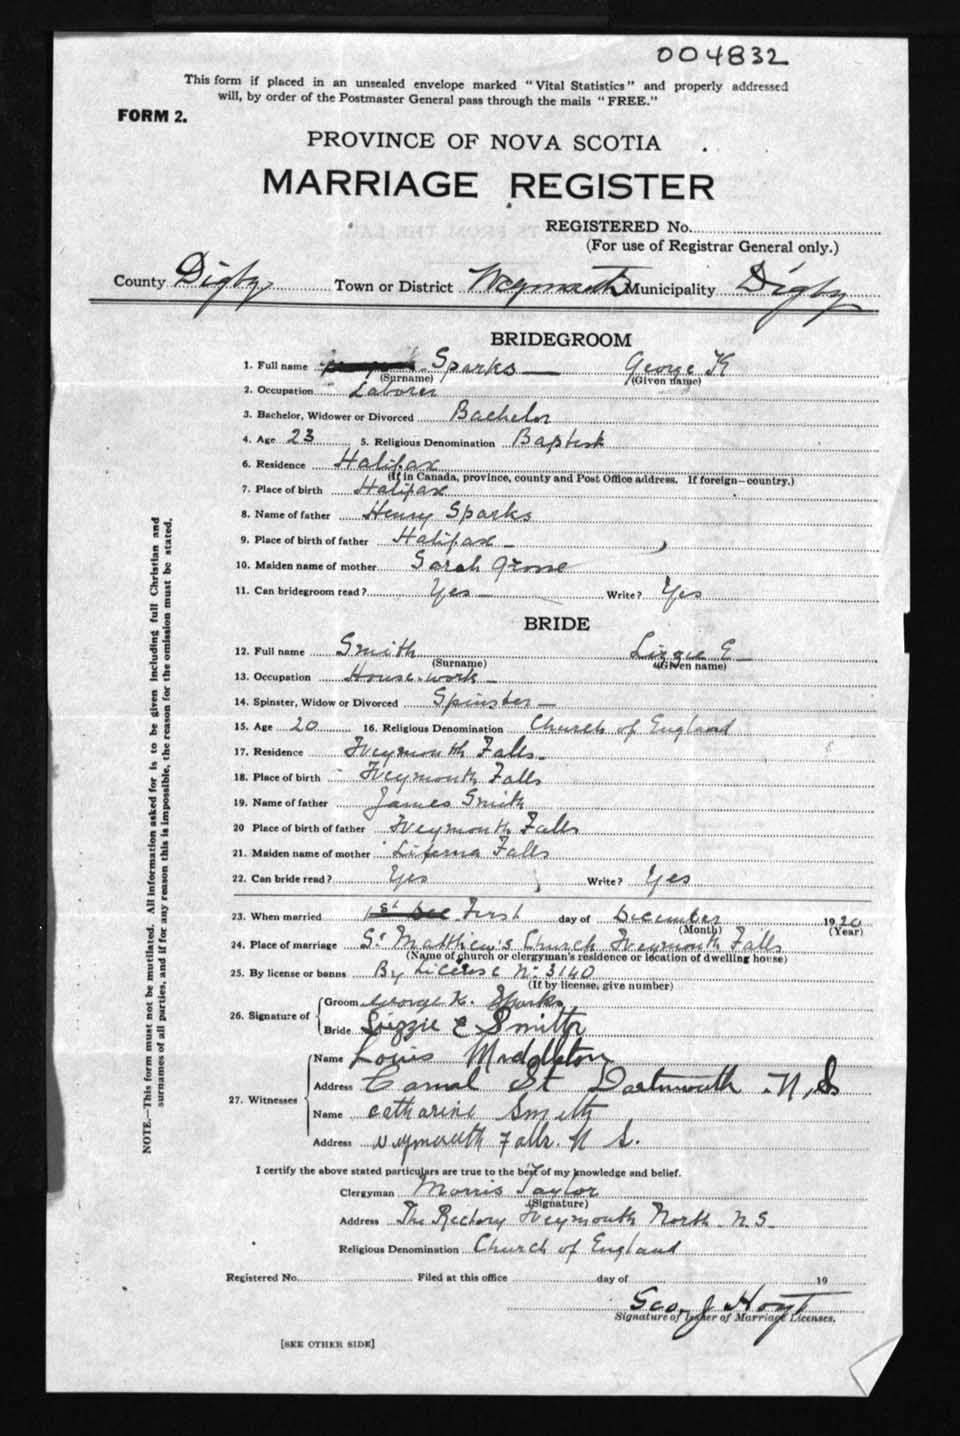 004832
This form if placed in an unsealed envelope marked "Vital Statistics" and properly addressed
will, by order of the Postmaster General pass through the mails "FREE."
FORM 2.
PROVINCE OF NOVA SCOTIA
MARRIAGE REGISTER
REGISTERED No.
(For use of Registrar General only.)
County Digby Town or District Weymouth Municipality Digby
BRIDEGROOM
1. Full name Sparks George K
(Surname) (Given name)
2. Occupation Laborer
3. Bachelor, Widower or Divorced Bachelor
4. Age 23 5. Religious Denomination Baptist
6. Residence Halifax
(If in Canada, province, county and Post Office address. If foreign—country.)
7. Place of birth Halifax
8. Name of father Henry Sparks
9. Place of birth of father Halifax
10. Maiden name of mother Sarah Grosse
11. Can bridegroom read? Yes Write? Yes
BRIDE
12. Full name Smith Lizzie E
(Surname) (Given name)
13. Occupation House-work
14. Spinster, Widow or Divorced Spinster
15. Age 20 16. Religious Denomination Church of England
17. Residence Weymouth Falls
18. Place of birth Weymouth Falls
19. Name of father James Smith
20 Place of birth of father Weymouth Falls
21. Maiden name of mother Falls
22. Can bride read? Yes Write? Yes
23. When married 1st Dec First day of December 1920
(Month) (Year)
24. Place of marriage St Matthew's Church Weymouth Falls
(Name of church or clergyman's residence or location of dwelling house)
25. By license or banns By License No 3140
(If by license, give number)
26. Signature of
Groom George K. Sparks
Bride Lizzie E Smith
27. Witnesses
Name Louis Middleton
Address Canal St Dartmouth N.S
Name Catharine Smith
Address Weymouth Falls. N S.
I certify the above stated particulars are true to the best of my knowledge and belief.
Clergyman Morris Taylor
(Signature)
Address The Rectory Weymouth North N.S.
Religious Denomination Church of England
Registered No. Filed at this office day of 19
Geo. J Hoyt
Signature of Issuer of Marriage Licenses.
[SEE OTHER SIDE]
NOTE.—This form must not be mutilated. All information asked for is to be given including full Christian and
surnames of all parties, and if for any reason this is impossible, the reason for the omission must be stated.